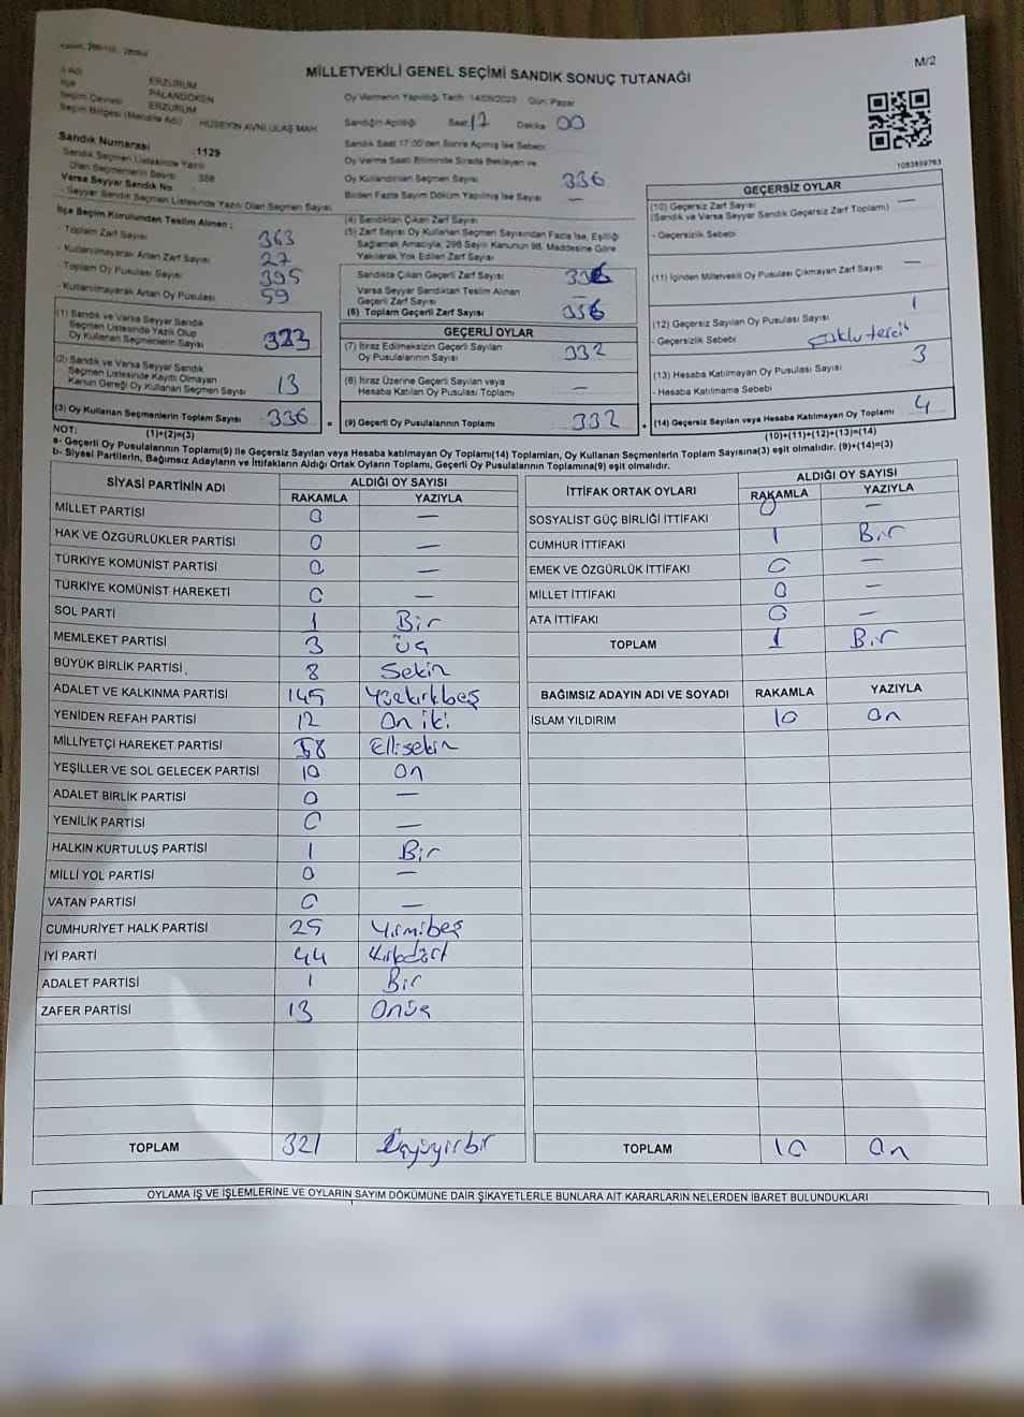 M/2
MİLLETVEKİLİ GENEL SEÇİMİ SANDIK SONUÇ TUTANAĞI
ERZURUM
PALANDÖKEN
ERZURUM
HÜSEYİN AVNİ ULAŞ MAH.
Oy Vermenin Yapıldığı Tarih: 14/05/2023 Gün: Pazar
Sandığın Açıldığı Saat: 17 Dakika 00
Sandık Saat 17:00'den Sonra Açılmış İse Sebebi:
Oy Verme Saati Bitiminde Sırada Bekleyen ve
Oy Kullandırılan Seçmen Sayısı 336
Birden Fazla Sayım Döküm Yapılmış İse Sayısı —
1083899763
Sandık Numarası :1129
Sandık Seçmen Listesinde Yazılı
Olan Seçmenlerin Sayısı
Varsa Seyyar Sandık No
- Seyyar Sandık Seçmen Listesinde Yazılı Olan Seçmen Sayısı
İlçe Seçim Kurulundan Teslim Alınan ;
- Toplam Zarf Sayısı 363
- Kullanılmayarak Artan Zarf Sayısı 27
- Toplam Oy Pusulası Sayısı 395
- Kullanılmayarak Artan Oy Pusulası 59
(1) Sandık ve Varsa Seyyar Sandık
Seçmen Listesinde Yazılı Olup
Oy Kullanan Seçmenlerin Sayısı 323
(2) Sandık ve Varsa Seyyar Sandık
Seçmen Listesinde Kayıtlı Olmayan
Kanun Gereği Oy Kullanan Seçmen Sayısı 13
(3) Oy Kullanan Seçmenlerin Toplam Sayısı 336
(4) Sandıktan Çıkan Zarf Sayısı
(5) Zarf Sayısı Oy Kullanan Seçmen Sayısından Fazla İse, Eşitliği
Sağlamak Amacıyla, 298 Sayılı Kanunun 98. Maddesine Göre
Yakılarak Yok Edilen Zarf Sayısı
Sandıkta Çıkan Geçerli Zarf Sayısı 336
Varsa Seyyar Sandıktan Teslim Alınan
Geçerli Zarf Sayısı —
(6) Toplam Geçerli Zarf Sayısı 336
GEÇERLİ OYLAR
(7) İtiraz Edilmeksizin Geçerli Sayılan
Oy Pusulalarının Sayısı 332
(8) İtiraz Üzerine Geçerli Sayılan veya
Hesaba Katılan Oy Pusulası Toplamı —
(9) Geçerli Oy Pusulalarının Toplamı 332
GEÇERSİZ OYLAR
(10) Geçersiz Zarf Sayısı —
(Sandık ve Varsa Seyyar Sandık Geçersiz Zarf Toplamı)
- Geçersizlik Sebebi
(11) İçinden Milletvekili Oy Pusulası Çıkmayan Zarf Sayısı —
(12) Geçersiz Sayılan Oy Pusulası Sayısı 1
- Geçersizlik Sebebi Çoklu tercih
(13) Hesaba Katılmayan Oy Pusulası Sayısı 3
- Hesaba Katılmama Sebebi
(14) Geçersiz Sayılan veya Hesaba Katılmayan Oy Toplamı 4
NOT: (1)+(2)=(3) (10)+(11)+(12)+(13)=(14)
a- Geçerli Oy Pusulalarının Toplamı(9) ile Geçersiz Sayılan veya Hesaba katılmayan Oy Toplamı(14) Toplamları, Oy Kullanan Seçmenlerin Toplam Sayısına(3) eşit olmalıdır. (9)+(14)=(3)
b- Siyasi Partilerin, Bağımsız Adayların ve İttifakların Aldığı Ortak Oyların Toplamı, Geçerli Oy Pusulalarının Toplamına(9) eşit olmalıdır.
SİYASİ PARTİNİN ADI ALDIĞI OY SAYISI
RAKAMLA YAZIYLA
MİLLET PARTİSİ 0 —
HAK VE ÖZGÜRLÜKLER PARTİSİ 0 —
TÜRKİYE KOMÜNİST PARTİSİ 0 —
TÜRKİYE KOMÜNİST HAREKETİ 0 —
SOL PARTİ 1 Bir
MEMLEKET PARTİSİ 3 Üç
BÜYÜK BİRLİK PARTİSİ 8 Sekiz
ADALET VE KALKINMA PARTİSİ 145 Yüzkırkbeş
YENİDEN REFAH PARTİSİ 12 On iki
MİLLİYETÇİ HAREKET PARTİSİ 58 Ellisekiz
YEŞİLLER VE SOL GELECEK PARTİSİ 10 On
ADALET BİRLİK PARTİSİ 0 —
YENİLİK PARTİSİ 0 —
HALKIN KURTULUŞ PARTİSİ 1 Bir
MİLLİ YOL PARTİSİ 0 —
VATAN PARTİSİ 0 —
CUMHURİYET HALK PARTİSİ 25 Yirmibeş
İYİ PARTİ 44 Kırkdört
ADALET PARTİSİ 1 Bir
ZAFER PARTİSİ 13 Onüç
TOPLAM 321 Üçyüzyirmibir
İTTİFAK ORTAK OYLARI ALDIĞI OY SAYISI
RAKAMLA YAZIYLA
SOSYALİST GÜÇ BİRLİĞİ İTTİFAKI 0 —
CUMHUR İTTİFAKI 1 Bir
EMEK VE ÖZGÜRLÜK İTTİFAKI 0 —
MİLLET İTTİFAKI 0 —
ATA İTTİFAKI 0 —
TOPLAM 1 Bir
BAĞIMSIZ ADAYIN ADI VE SOYADI RAKAMLA YAZIYLA
İSLAM YILDIRIM 10 On
TOPLAM 10 On
OYLAMA İŞ VE İŞLEMLERİNE VE OYLARIN SAYIM DÖKÜMÜNE DAİR ŞİKAYETLERLE BUNLARA AİT KARARLARIN NELERDEN İBARET BULUNDUKLARI